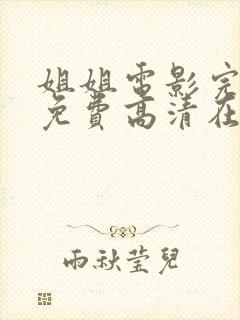 姐姐電影完
免費高清在
雨秋莹兒